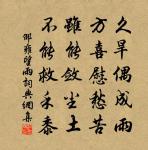 久旱偶成雨
方喜慰愁苦
雖能斂尘土
不能救禾黍
邵雍望雨詞典網集